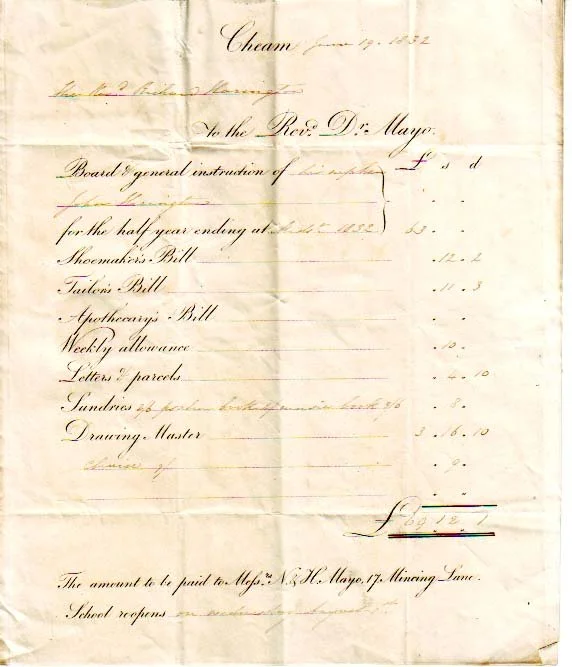 Cheam June 19. 1832
The Revd Richard Harington
To the Revd. Dr. Mayo.
£ s d
Board & general instruction of his nephew
John Harington
for the half year ending at 1832 63 . .
Shoemaker's Bill . 12 . 2
Tailor's Bill . 11 . 3
Apothecary's Bill . .
Weekly allowance . 10 .
Letters & parcels . 4 . 10
Sundries book book . 8 .
Drawing Master 3 . 16 . 10
. 9 .
. .
£ 69 . 12 . 1
The amount to be paid to Messrs. N. & H. Mayo, 17, Mincing Lane.
School reopens on August